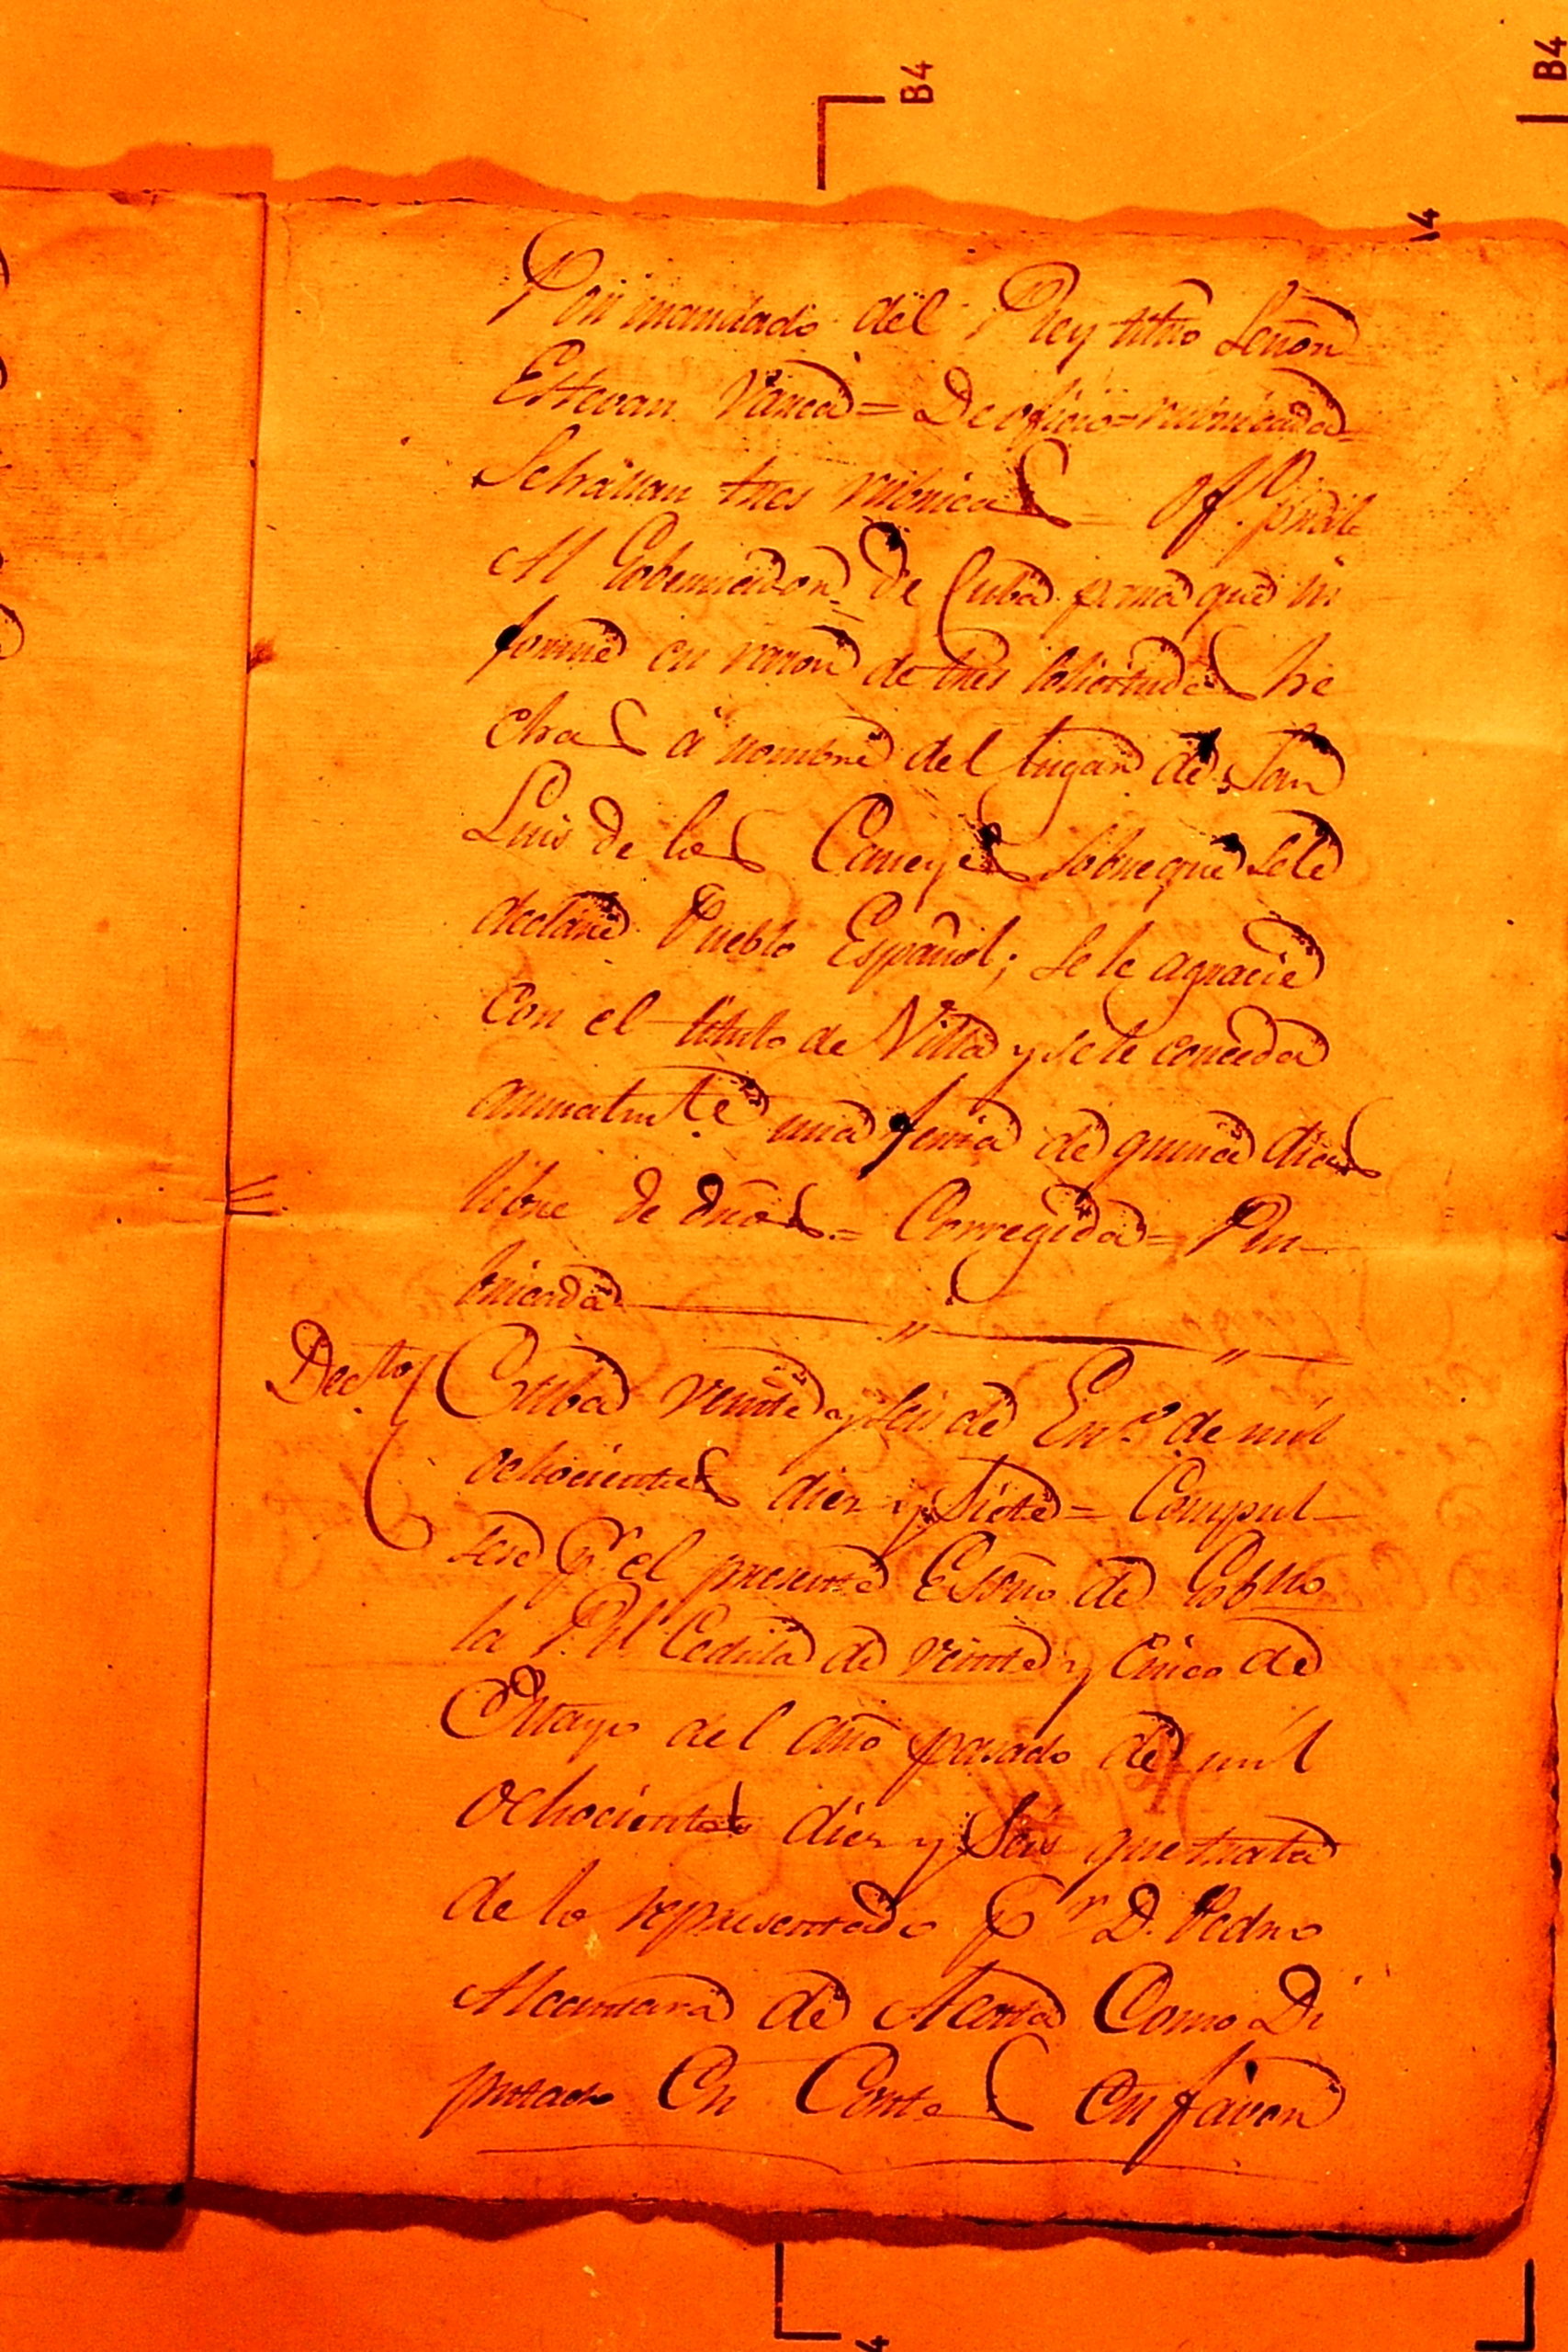 B4
B4
A4
Por mandado del Rey ntro Señor
Estevan Varea = De oficio = rubricada =
Se hallan tres rubricas = Of.º pral
Al Gobernador de Cuba para que in
forme en razon de tres solicitudes he
chas á nombre del lugar de San
Luis de los Caneyes sobre que se le
declare Pueblo Español; se le agracie
con el titulo de Villa y se le conceda
annualm.te una feria de quince dias
libre de dros = Corregida = Ru-
bricada
Decto Cuba veinte y seis de En.º de mil
ochocientos diez y siete = Compul-
sese p.r el presente Esno de Gobno
la Rl Cedula de veinte y cinco de
Mayo del año pasado de mil
ochocientos diez y seis que trata
de lo representado p.r D. Pedro
Alcantara de Acosta Como Di
putado En Cortes En favor
B4